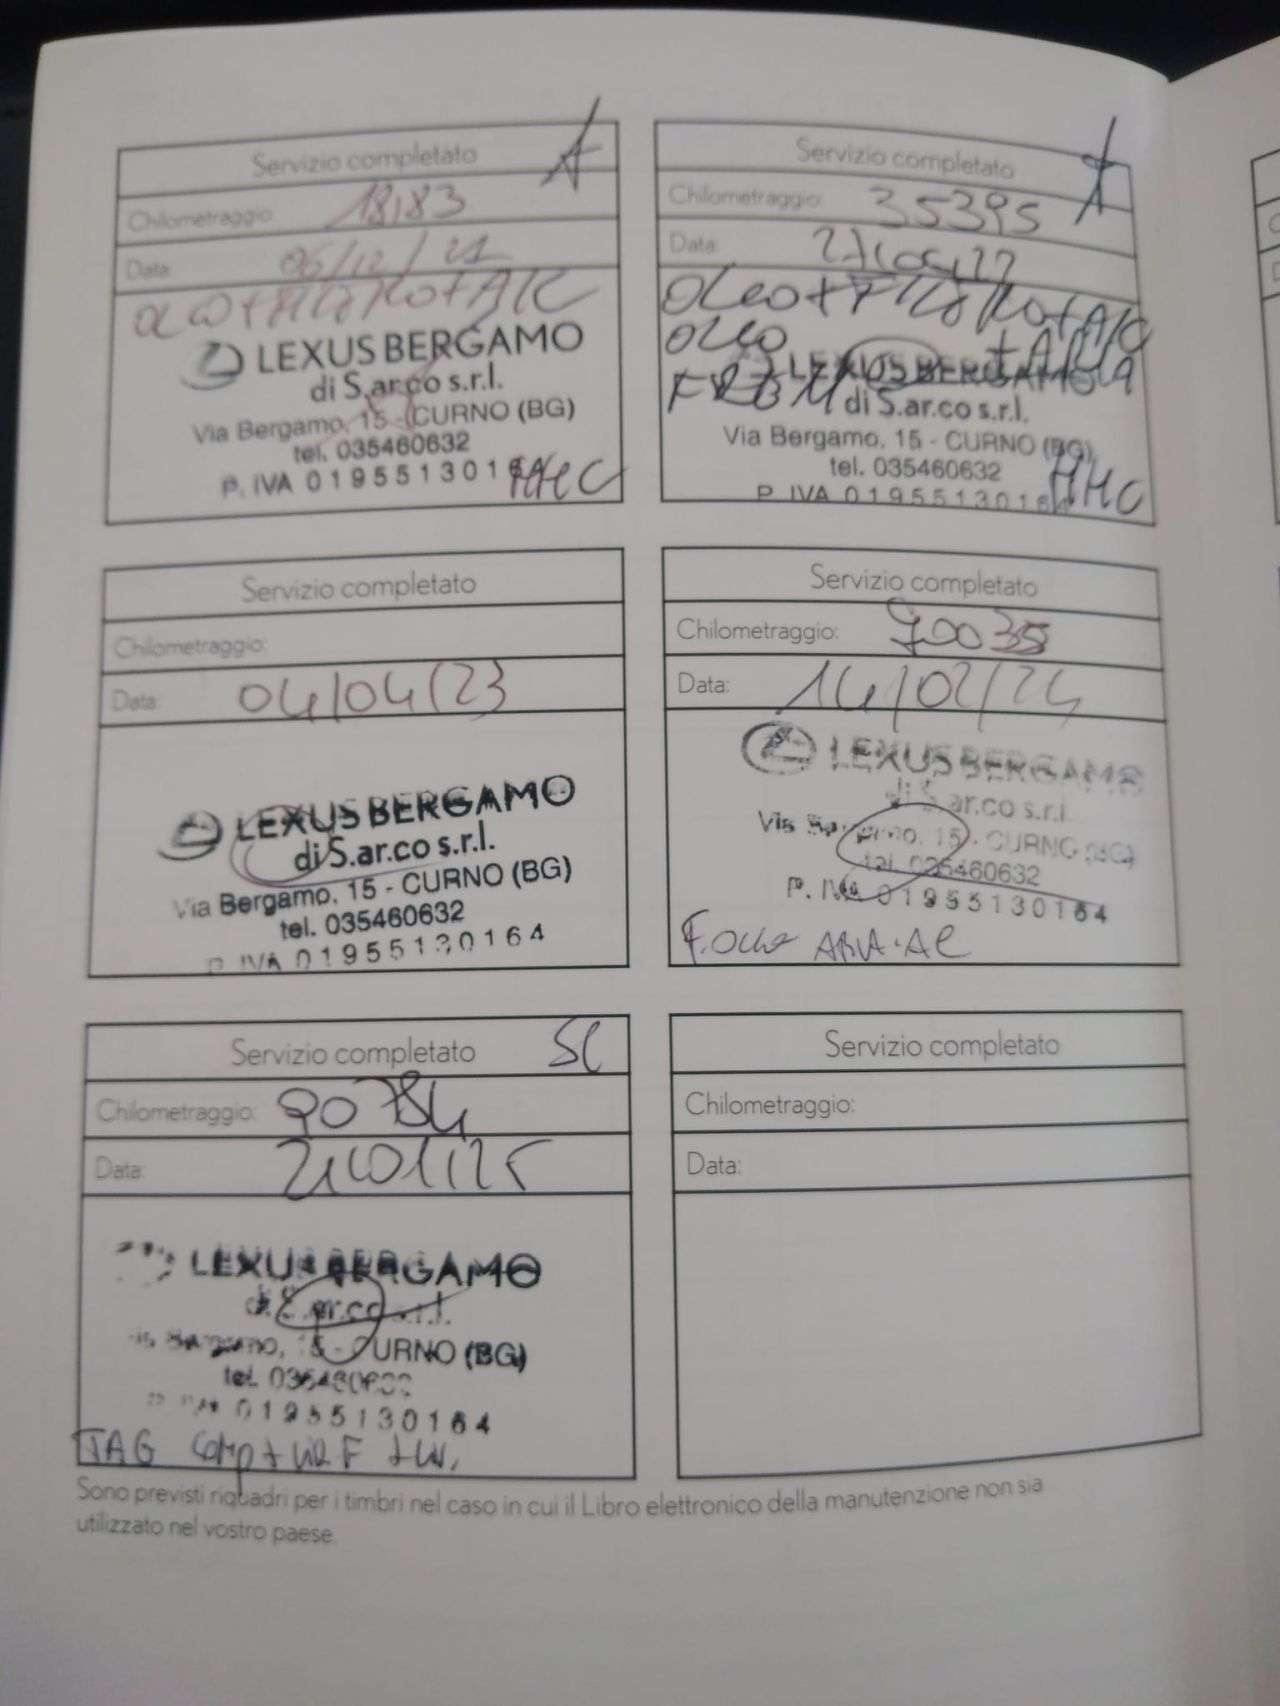 Servizio completato
Chilometraggio: 18183
Data: 06/12/21
LEXUS BERGAMO
di S.ar.co s.r.l.
Via Bergamo, 15 - CURNO (BG)
tel. 035460632
P. IVA 019551301
HHC
Servizio completato
Chilometraggio: 35395
Data:
OLeo+FILtRo+A/C
OLeo
LEXUS BERGAMO
di S.ar.co s.r.l.
Via Bergamo, 15 - CURNO (BG)
tel. 035460632
P. IVA 0195513016
HHC
Servizio completato
Chilometraggio:
Data: 04/04/23
LEXUS BERGAMO
di S.ar.co s.r.l.
Via Bergamo, 15 - CURNO (BG)
tel. 035460632
P. IVA 01955130164
Servizio completato
Chilometraggio: 70035
Data: 14/02/24
LEXUS BERGAMO
di S.ar.co s.r.l.
Via Bergamo, 15 - CURNO (BG)
tel. 035460632
P. IVA 01955130164
ARIA AC
Servizio completato
Chilometraggio: 90784
Data: 21/01/25
LEXUS BERGAMO
di S.ar.co s.r.l.
Bergamo, 15 - CURNO (BG)
tel. 035460632
01955130164
TAG Comp +
Servizio completato
Chilometraggio:
Data:
Sono previsti riquadri per i timbri nel caso in cui il Libro elettronico della manutenzione non sia
utilizzato nel vostro paese.